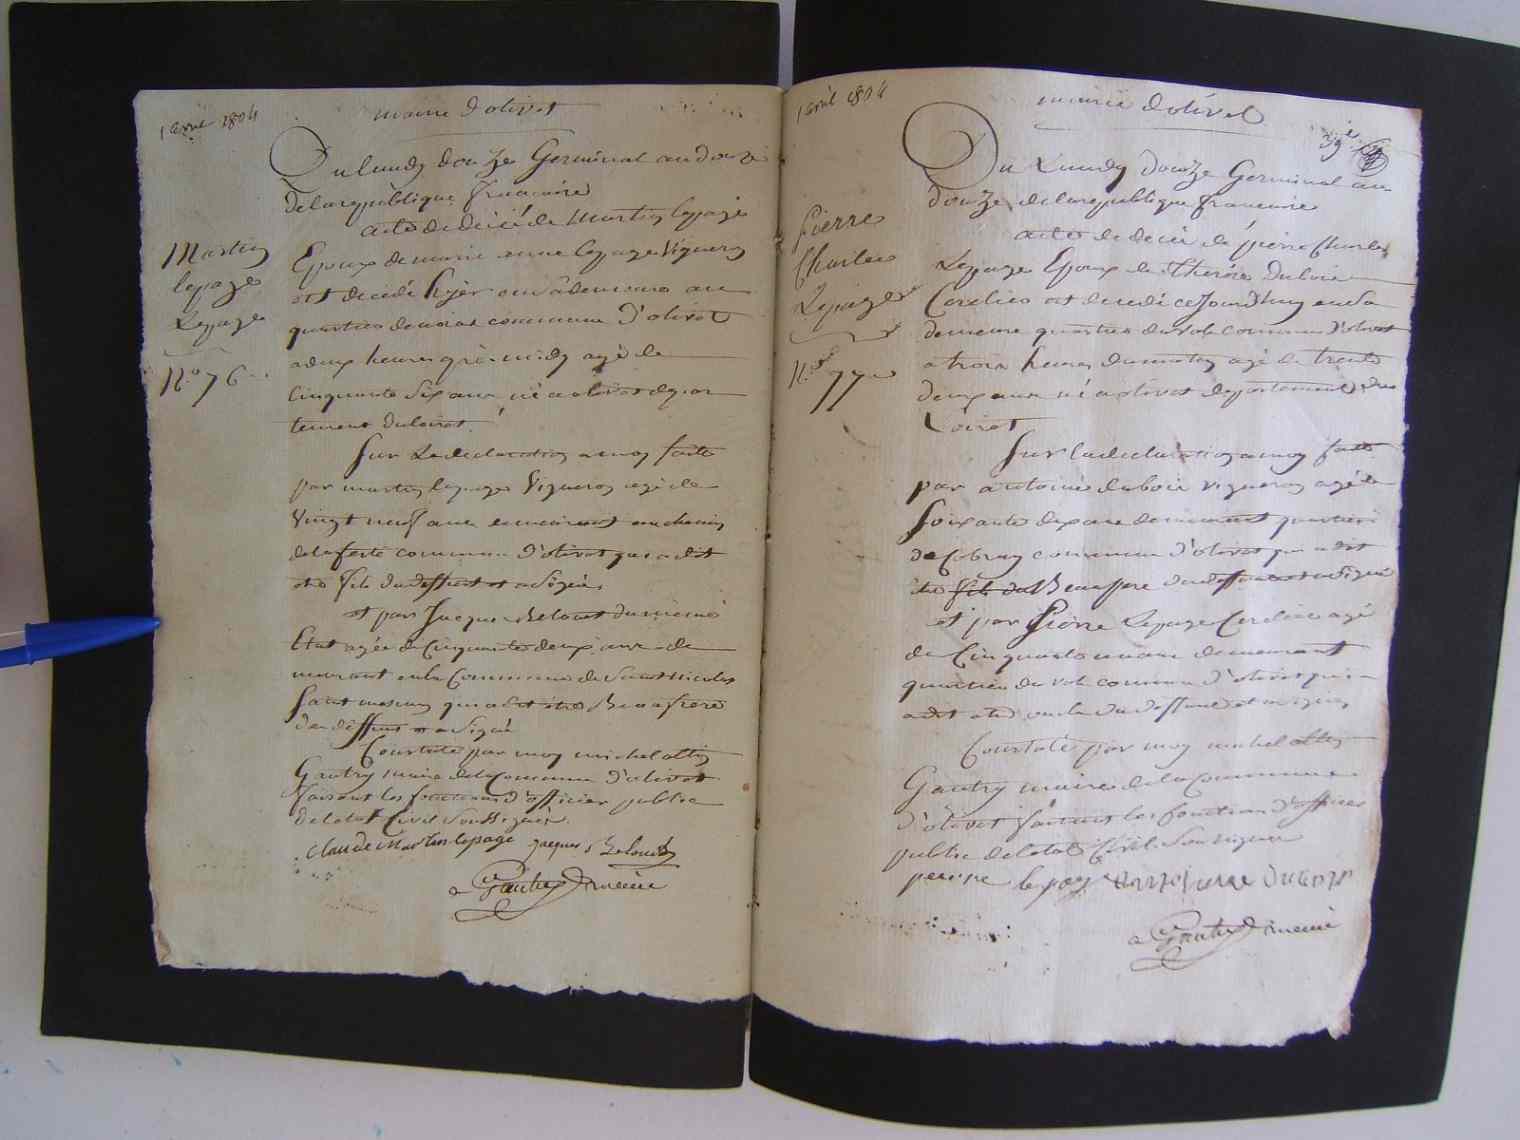 1 avril 1804
mairie d'olivet
Du lundy douze Germinal an douze
de la republique francaise
acte de décé de Martin lepage
Epoux de marie anne lepage Vigneron
est decedé hyèr en sa demeure au
quartier de noiras commune d'olivet
a deux heures après midy agé de
Cinquante Six ans né a olivet depar
tement du loiret
Martin
lepage
Lepage
N.o 76
Sur La declaration a moy faite
par martin lepage Vigneron agé de
Vingt neuf ans demeurant au chemin
de la ferté commune d'olivet qui a dit
etre fils du deffunt et a Signé
et par Jacque Beloust du meme
Etat agée de Cinquante deux ans de
meurant en la Commune de Saint nicolas
Saint mesmin qui a dit etre Beaufrere
du deffunt et a Signé
Constaté par moy michel
Gautry maire de la Commune d'olivet
faisant les fonctions d'officier public
de letat Civil Soussigné
Claude Martin lepage jacques Belouet
Gautry maire
1 avril 1804
mairie d'olivet
39
Du Lundy douze Germinal an
douze de la republique francaise
acte de décé de pierre Charles
Lepage Epoux de Therése Dubois
est decedé ce Jourdhuy en sa
demeure quartier du val commune d'olivet
a trois heures du matin agé de trente
deux ans né a olivet departement du
Loiret
Pierre
Charles
Lepage
N.o 77
Sur la declaration a moy faite
par antoine dubois vigneron agé de
Soixante dix ans demeurant quartier
de Cobray commune d'olivet qui a dit
etre fils du Beaupere du deffunt et a Signé
et par Pierre Lepage agé
de Cinquante un ans demeurant
quartier du val commune d'olivet qui
a dit etre oncle du deffunt et a signé
Constaté par moy michel
Gautry maire de la Commune
d'olivet faisant les fonctions d'officier
public de letat Civil Soussigné
pierre lepage Dubois
Gautry maire